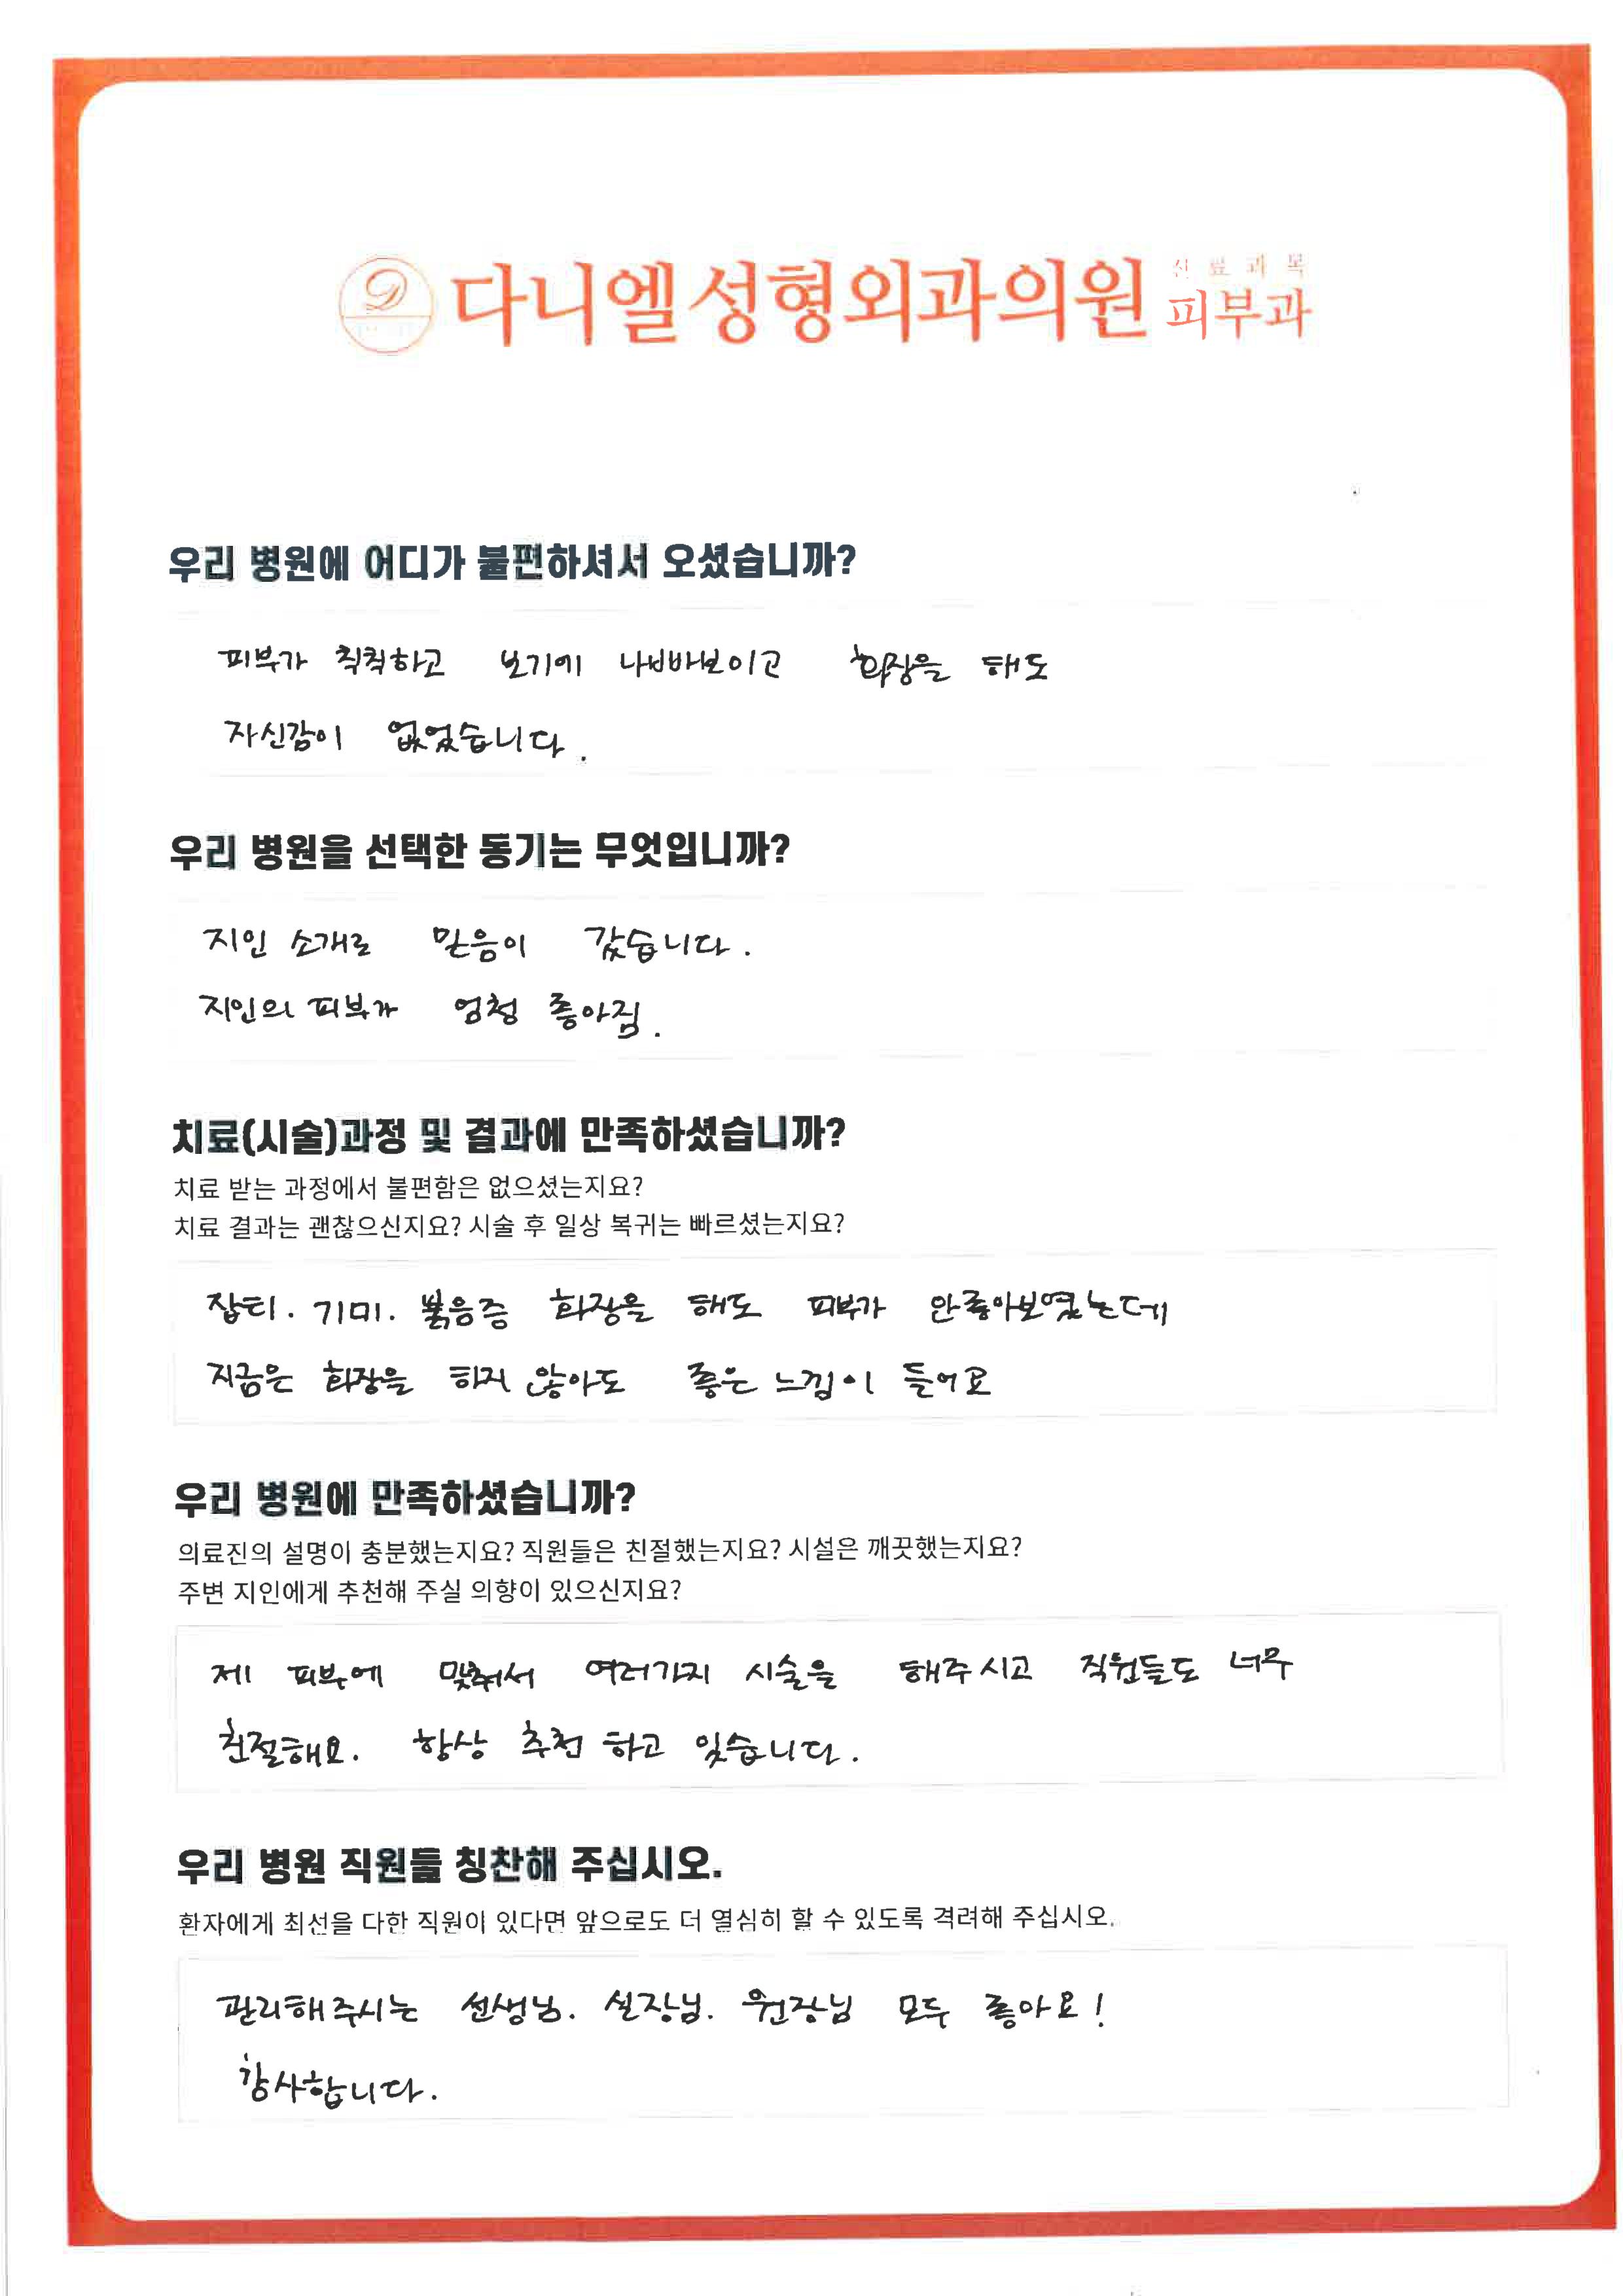 다니엘성형외과의원
진료과목
피부과
우리 병원에 어디가 불편하셔서 오셨습니까?
피부가 칙칙하고 보기에 나빠보이고 화장을 해도
자신감이 없었습니다.
우리 병원을 선택한 동기는 무엇입니까?
지인 소개로 믿음이 갔습니다.
지인의 피부가 엄청 좋아짐.
치료(시술)과정 및 결과에 만족하셨습니까?
치료 받는 과정에서 불편함은 없으셨는지요?
치료 결과는 괜찮으신지요? 시술 후 일상 복귀는 빠르셨는지요?
잡티. 기미. 붉음증 화장을 해도 피부가 안좋아보였는데
지금은 화장을 하지 않아도 좋은 느낌이 들어요
우리 병원에 만족하셨습니까?
의료진의 설명이 충분했는지요? 직원들은 친절했는지요? 시설은 깨끗했는지요?
주변 지인에게 추천해 주실 의향이 있으신지요?
제 피부에 맞춰서 여러가지 시술을 해주시고 직원들도 너무
친절해요. 항상 추천 하고 있습니다.
우리 병원 직원들 칭찬해 주십시오.
환자에게 최선을 다한 직원이 있다면 앞으로도 더 열심히 할 수 있도록 격려해 주십시오.
관리해주시는 선생님. 실장님. 원장님 모두 좋아요!
감사합니다.